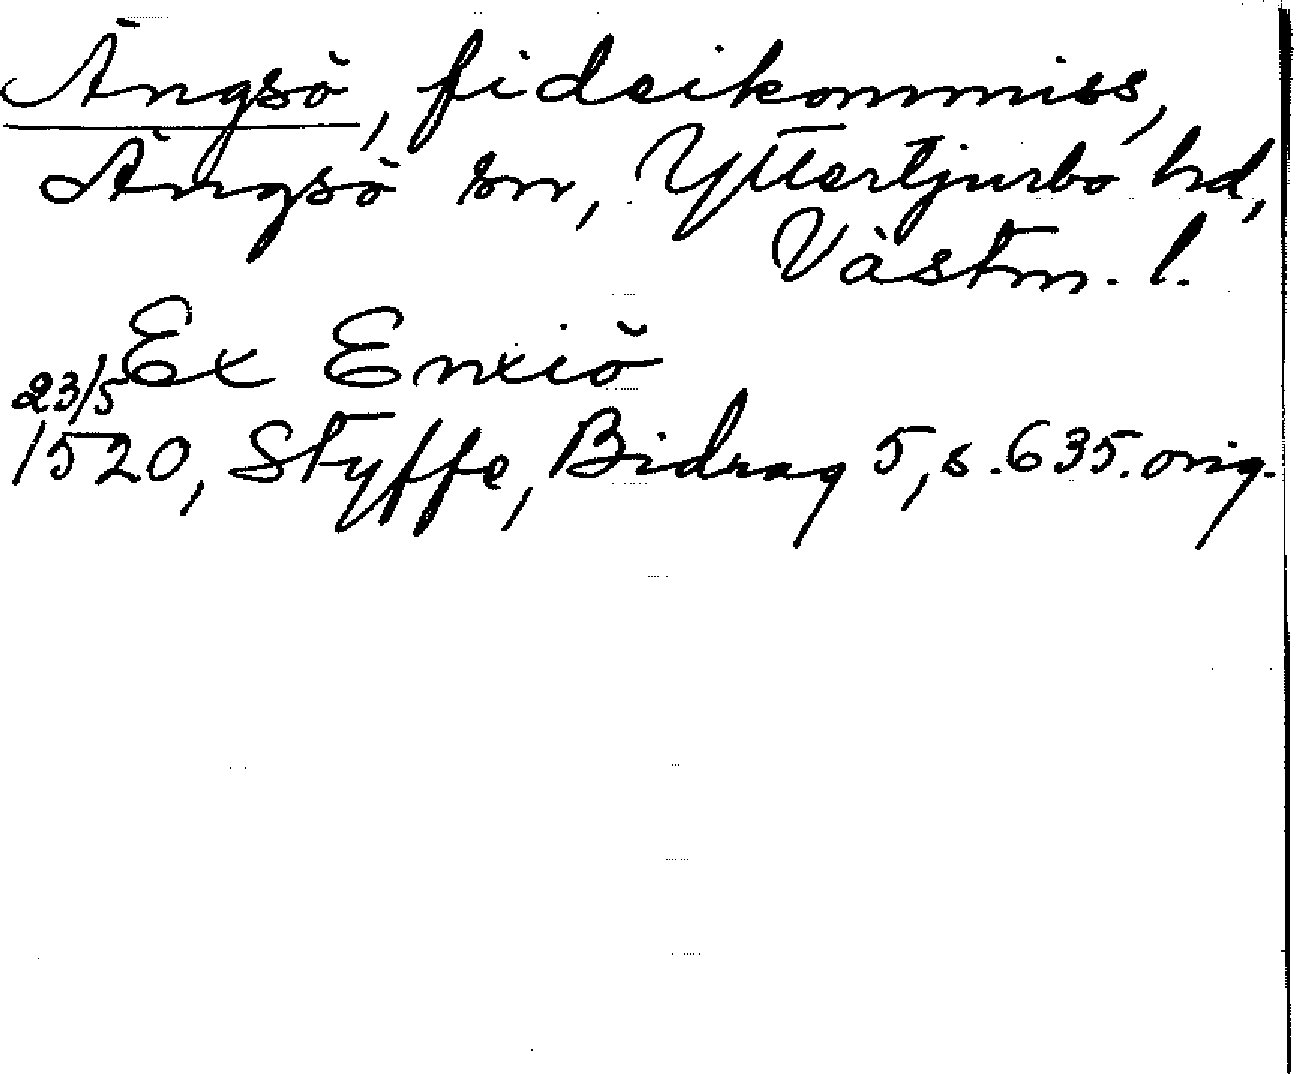 Ängsö, fideikommiss,
Ängsö sn, Yttertjurbo hd,
Västm. l.
Ex Enxiö
23/5
1520, Styffe, Bidrag 5, s. 635. orig.